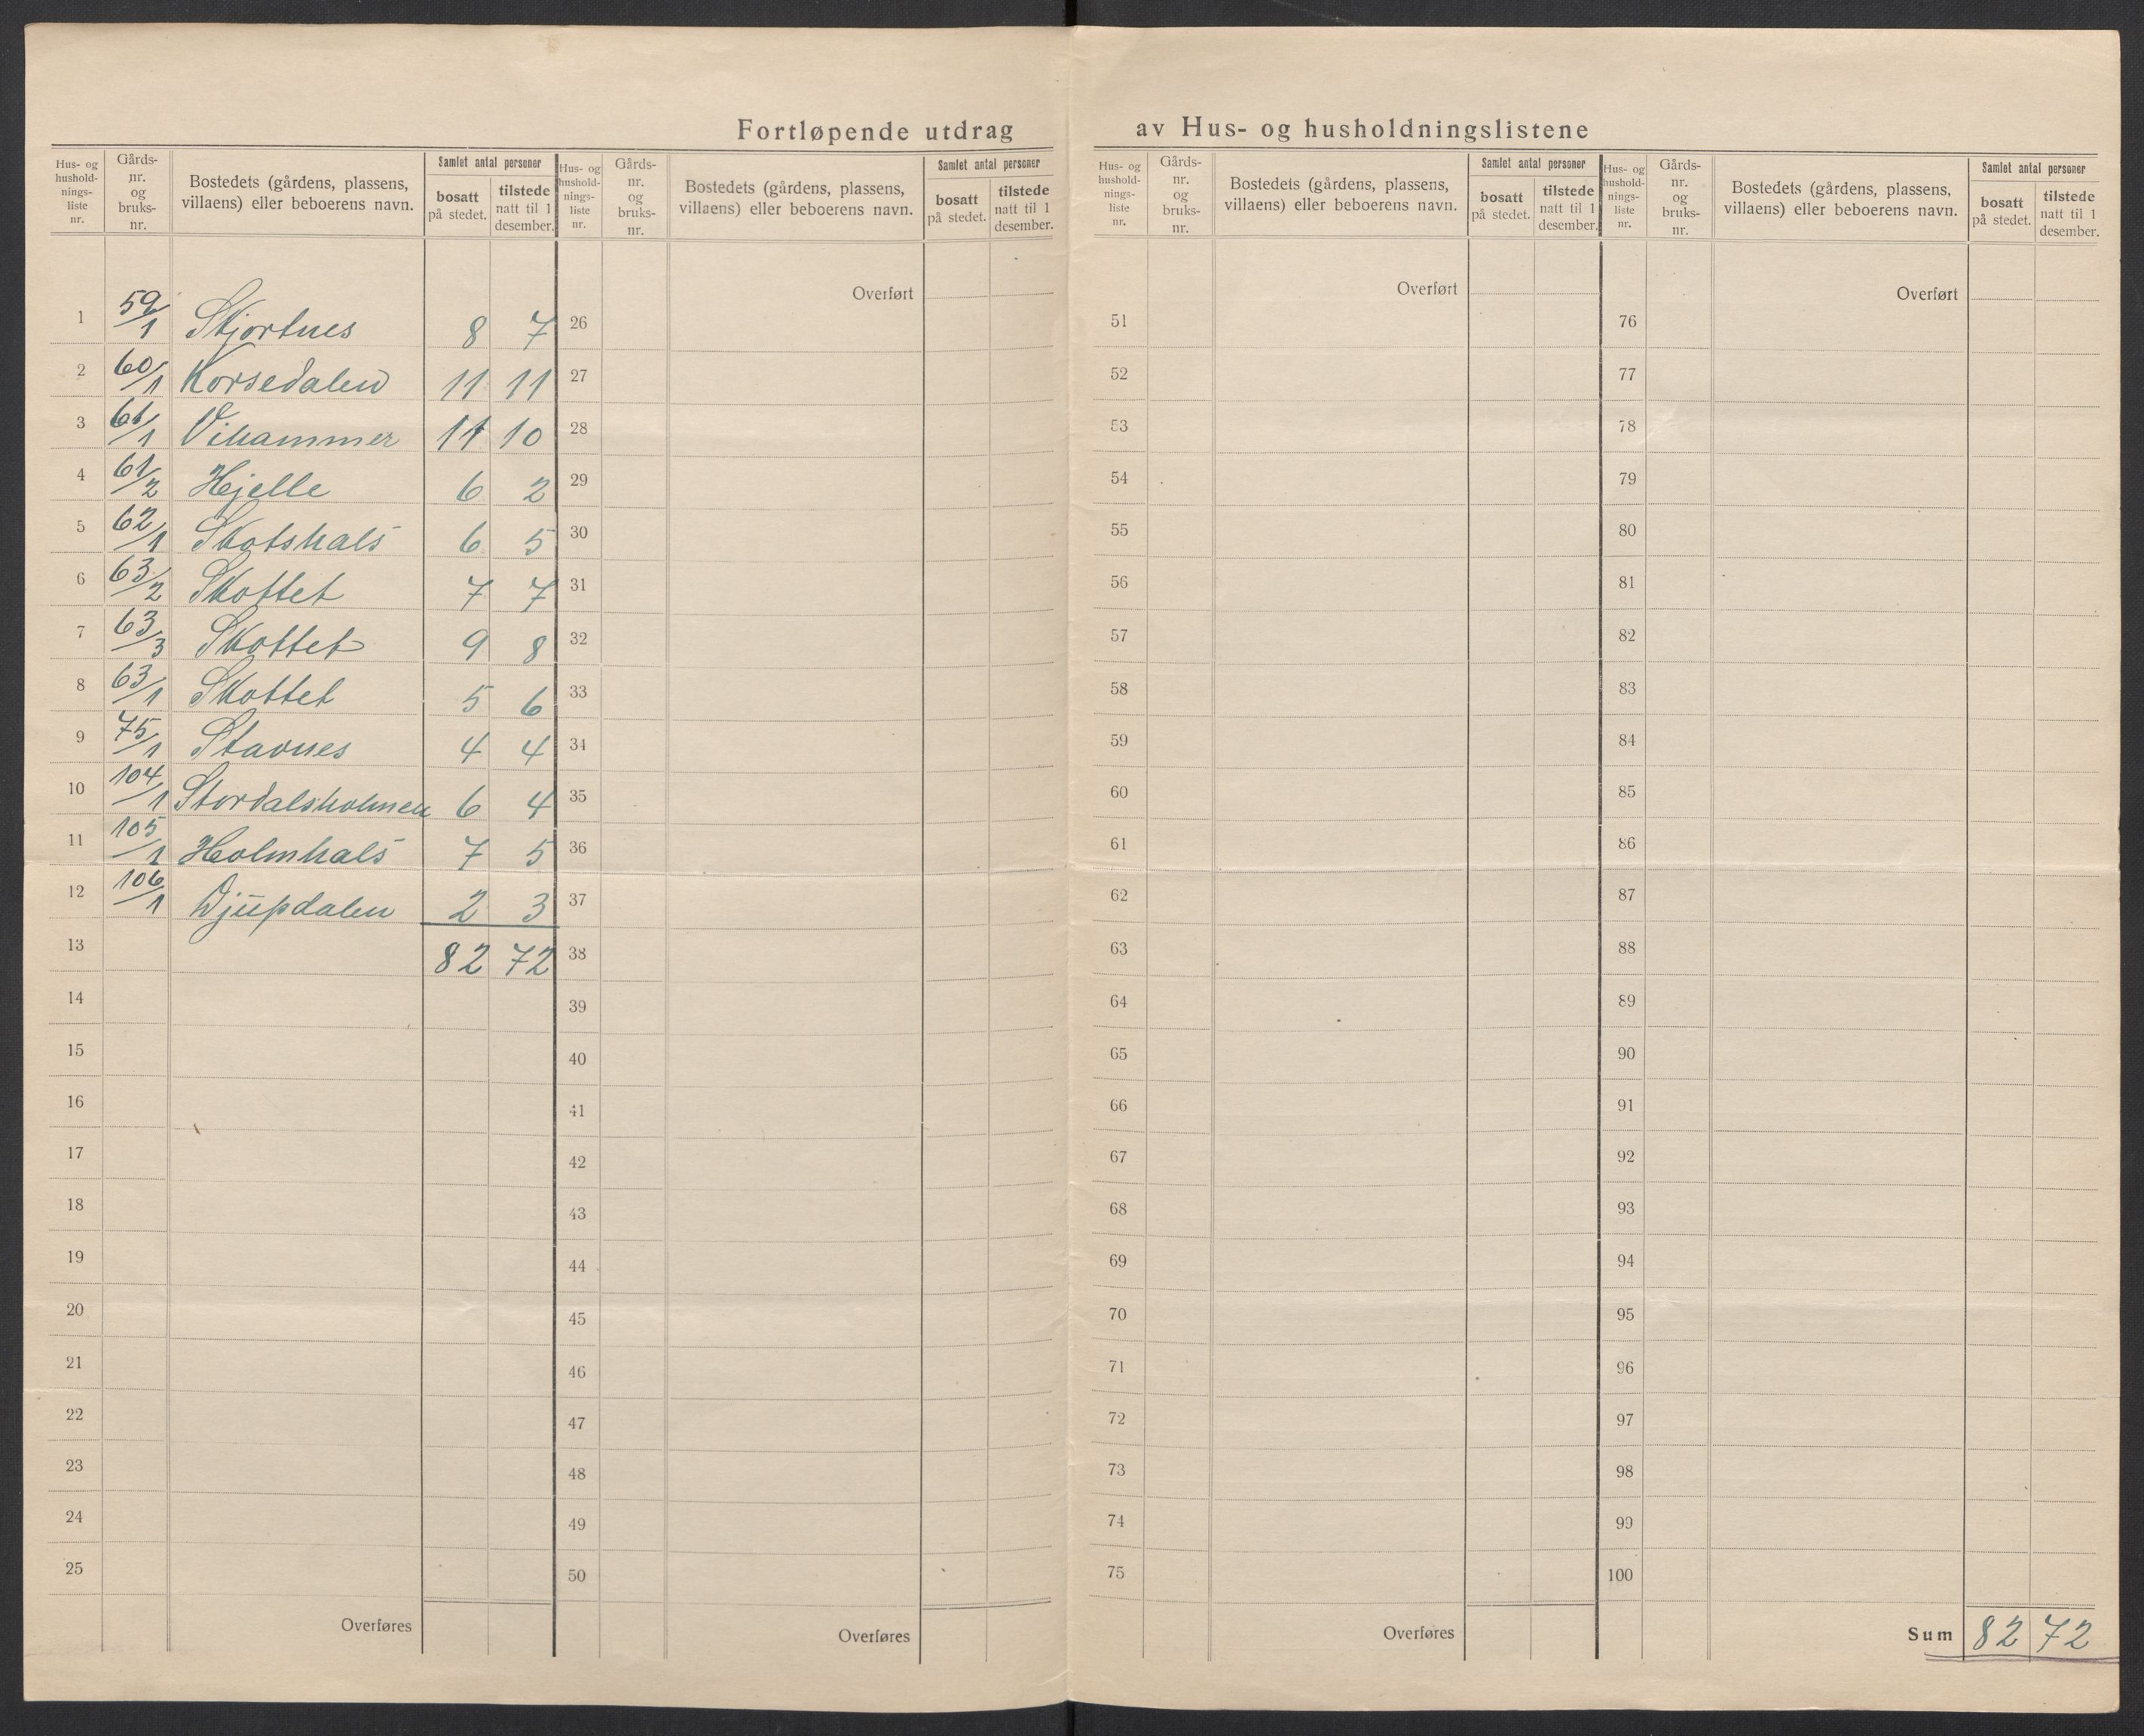 Fortløpende utdrag av Hus- og husholdningslistene
Hus- og hushold-nings-liste nr. | Gårds-nr. og bruks-nr. | Bostedets (gårdens, plassens, villaens) eller beboerens navn. | Samlet antal personer | bosatt på stedet. | tilstede natt til 1 desember.
1 59/1 Skjortnes 8 7
2 60/1 Korsedalen 11 11
3 61/1 Vihammer 11 10
4 61/2 Hjelle 6 2
5 62/1 Skotshals 6 5
6 63/2 Skottet 7 7
7 63/3 Skottet 9 8
8 63/1 Skottet 5 6
9 75/1 Stavnes 4 4
10 104/1 Stordalsholmen 6 4
11 105/1 Holmhals 7 5
12 106/1 Djupdalen 2 3
13 82 72
14
15
16
17
18
19
20
21
22
23
24
25
Overføres
Hus- og hushold-nings-liste nr. | Gårds-nr. og bruks-nr. | Bostedets (gårdens, plassens, villaens) eller beboerens navn. | Samlet antal personer | bosatt på stedet. | tilstede natt til 1 desember.
Overført
26
27
28
29
30
31
32
33
34
35
36
37
38
39
40
41
42
43
44
45
46
47
48
49
50
Overføres
Hus- og hushold-nings-liste nr. | Gårds-nr. og bruks-nr. | Bostedets (gårdens, plassens, villaens) eller beboerens navn. | Samlet antal personer | bosatt på stedet. | tilstede natt til 1 desember.
Overført
51
52
53
54
55
56
57
58
59
60
61
62
63
64
65
66
67
68
69
70
71
72
73
74
75
Overføres
Hus- og hushold-nings-liste nr. | Gårds-nr. og bruks-nr. | Bostedets (gårdens, plassens, villaens) eller beboerens navn. | Samlet antal personer | bosatt på stedet. | tilstede natt til 1 desember.
Overført
76
77
78
79
80
81
82
83
84
85
86
87
88
89
90
91
92
93
94
95
96
97
98
99
100
Sum 82 72